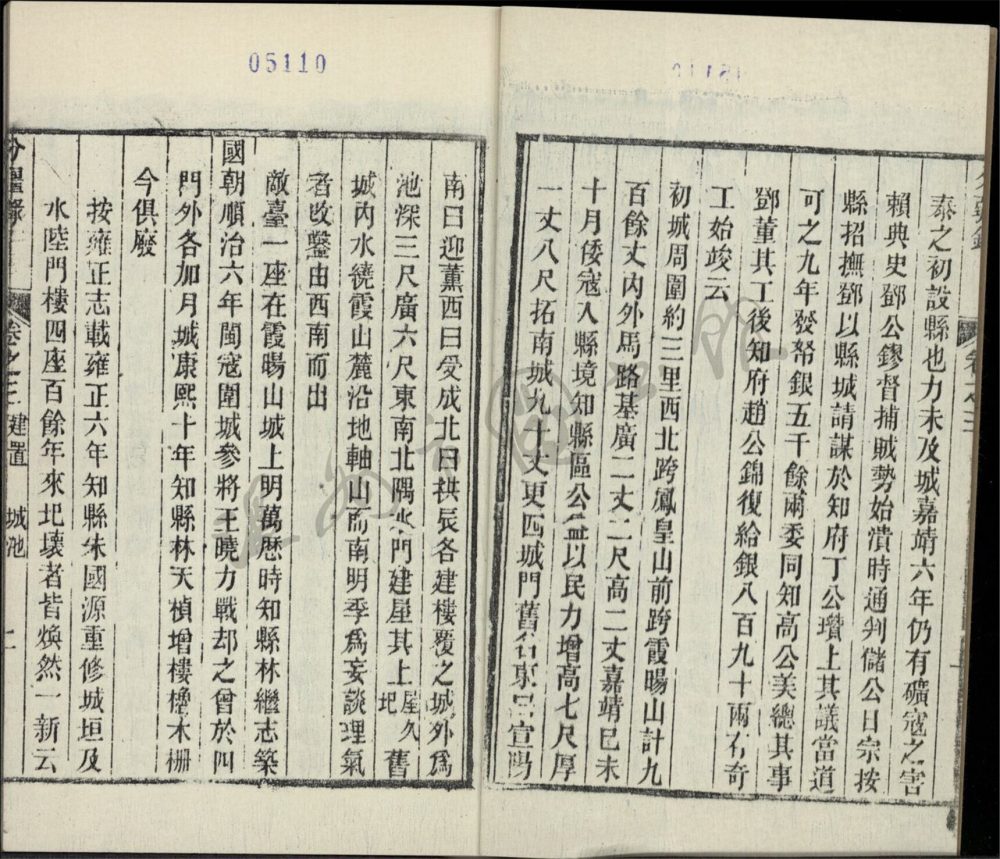 05110
泰之初設縣也力未及城嘉靖六年仍有礦寇之害
賴典史鄧公鏐督捕賊勢始潰時通判儲公日宗按
縣招撫鄧以縣城請謀於知府丁公瓚上其議當道
可之九年發帑銀五千餘兩委同知高公美總其事
鄧董其工後知府趙公錦復給銀八百九十兩有奇
工始竣云
初城周圍約三里西北跨鳳皇山前跨霞暘山計九
百餘丈内外馬路基廣二丈二尺高二丈嘉靖巳未
十月倭寇入縣境知縣區公益以民力增高七尺厚
一丈八尺拓南城九十丈更四城門舊名東曰宣陽
南曰迎薰西曰受成北曰拱辰各建樓覆之城外爲
池深三尺廣六尺東南北隅水門建屋其上屋久圮舊
城内水繞霞山麓沿地軸山而南明季爲妄談理氣
者改鑿由西南而出
敵臺一座在霞暘山城上明萬歷時知縣林繼志築
國朝順治六年閩寇圍城參將王曉力戰却之曾於四
門外各加月城康熙十年知縣林天楨增樓櫓木柵
今俱廢
按雍正志載雍正六年知縣朱國源重修城垣及
水陸門樓四座百餘年來圮壞者皆煥然一新云
分疆錄
卷之三 建置 城池